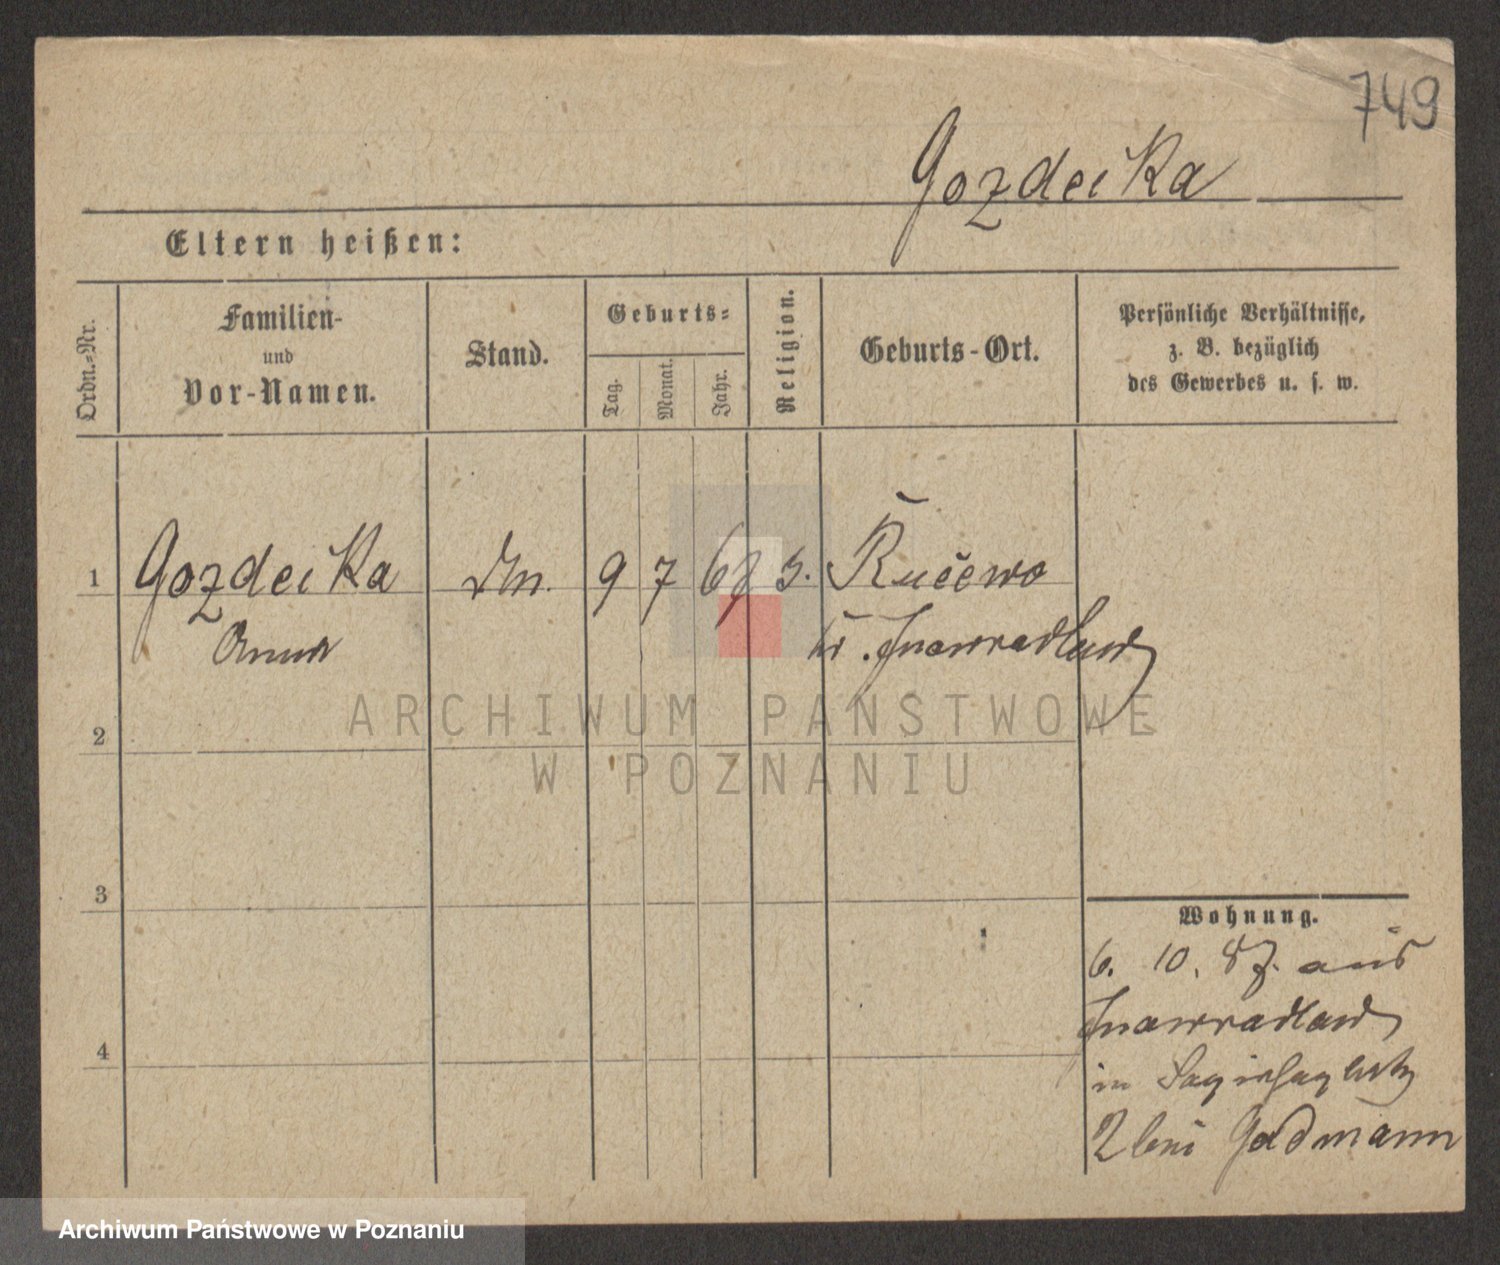 749
Gozdecka
Eltern heißen:
Ordn.-Nr.
Familien-
und
Vor-Namen.
Stand.
Geburts-
Tag.
Monat.
Jahr.
Religion.
Geburts-Ort.
Persönliche Verhältnisse,
z. B. bezüglich
des Gewerbes u. s. w.
1 Gozdecka 9 7 67
Anna
Inowradlaw
ARCHIWUM PAŃSTWOWE
W POZNANIU
2
3
4
Wohnung.
6. 10. 87. aus
Inowradlaw
in
2 bei Goldmann
Archiwum Państwowe w Poznaniu